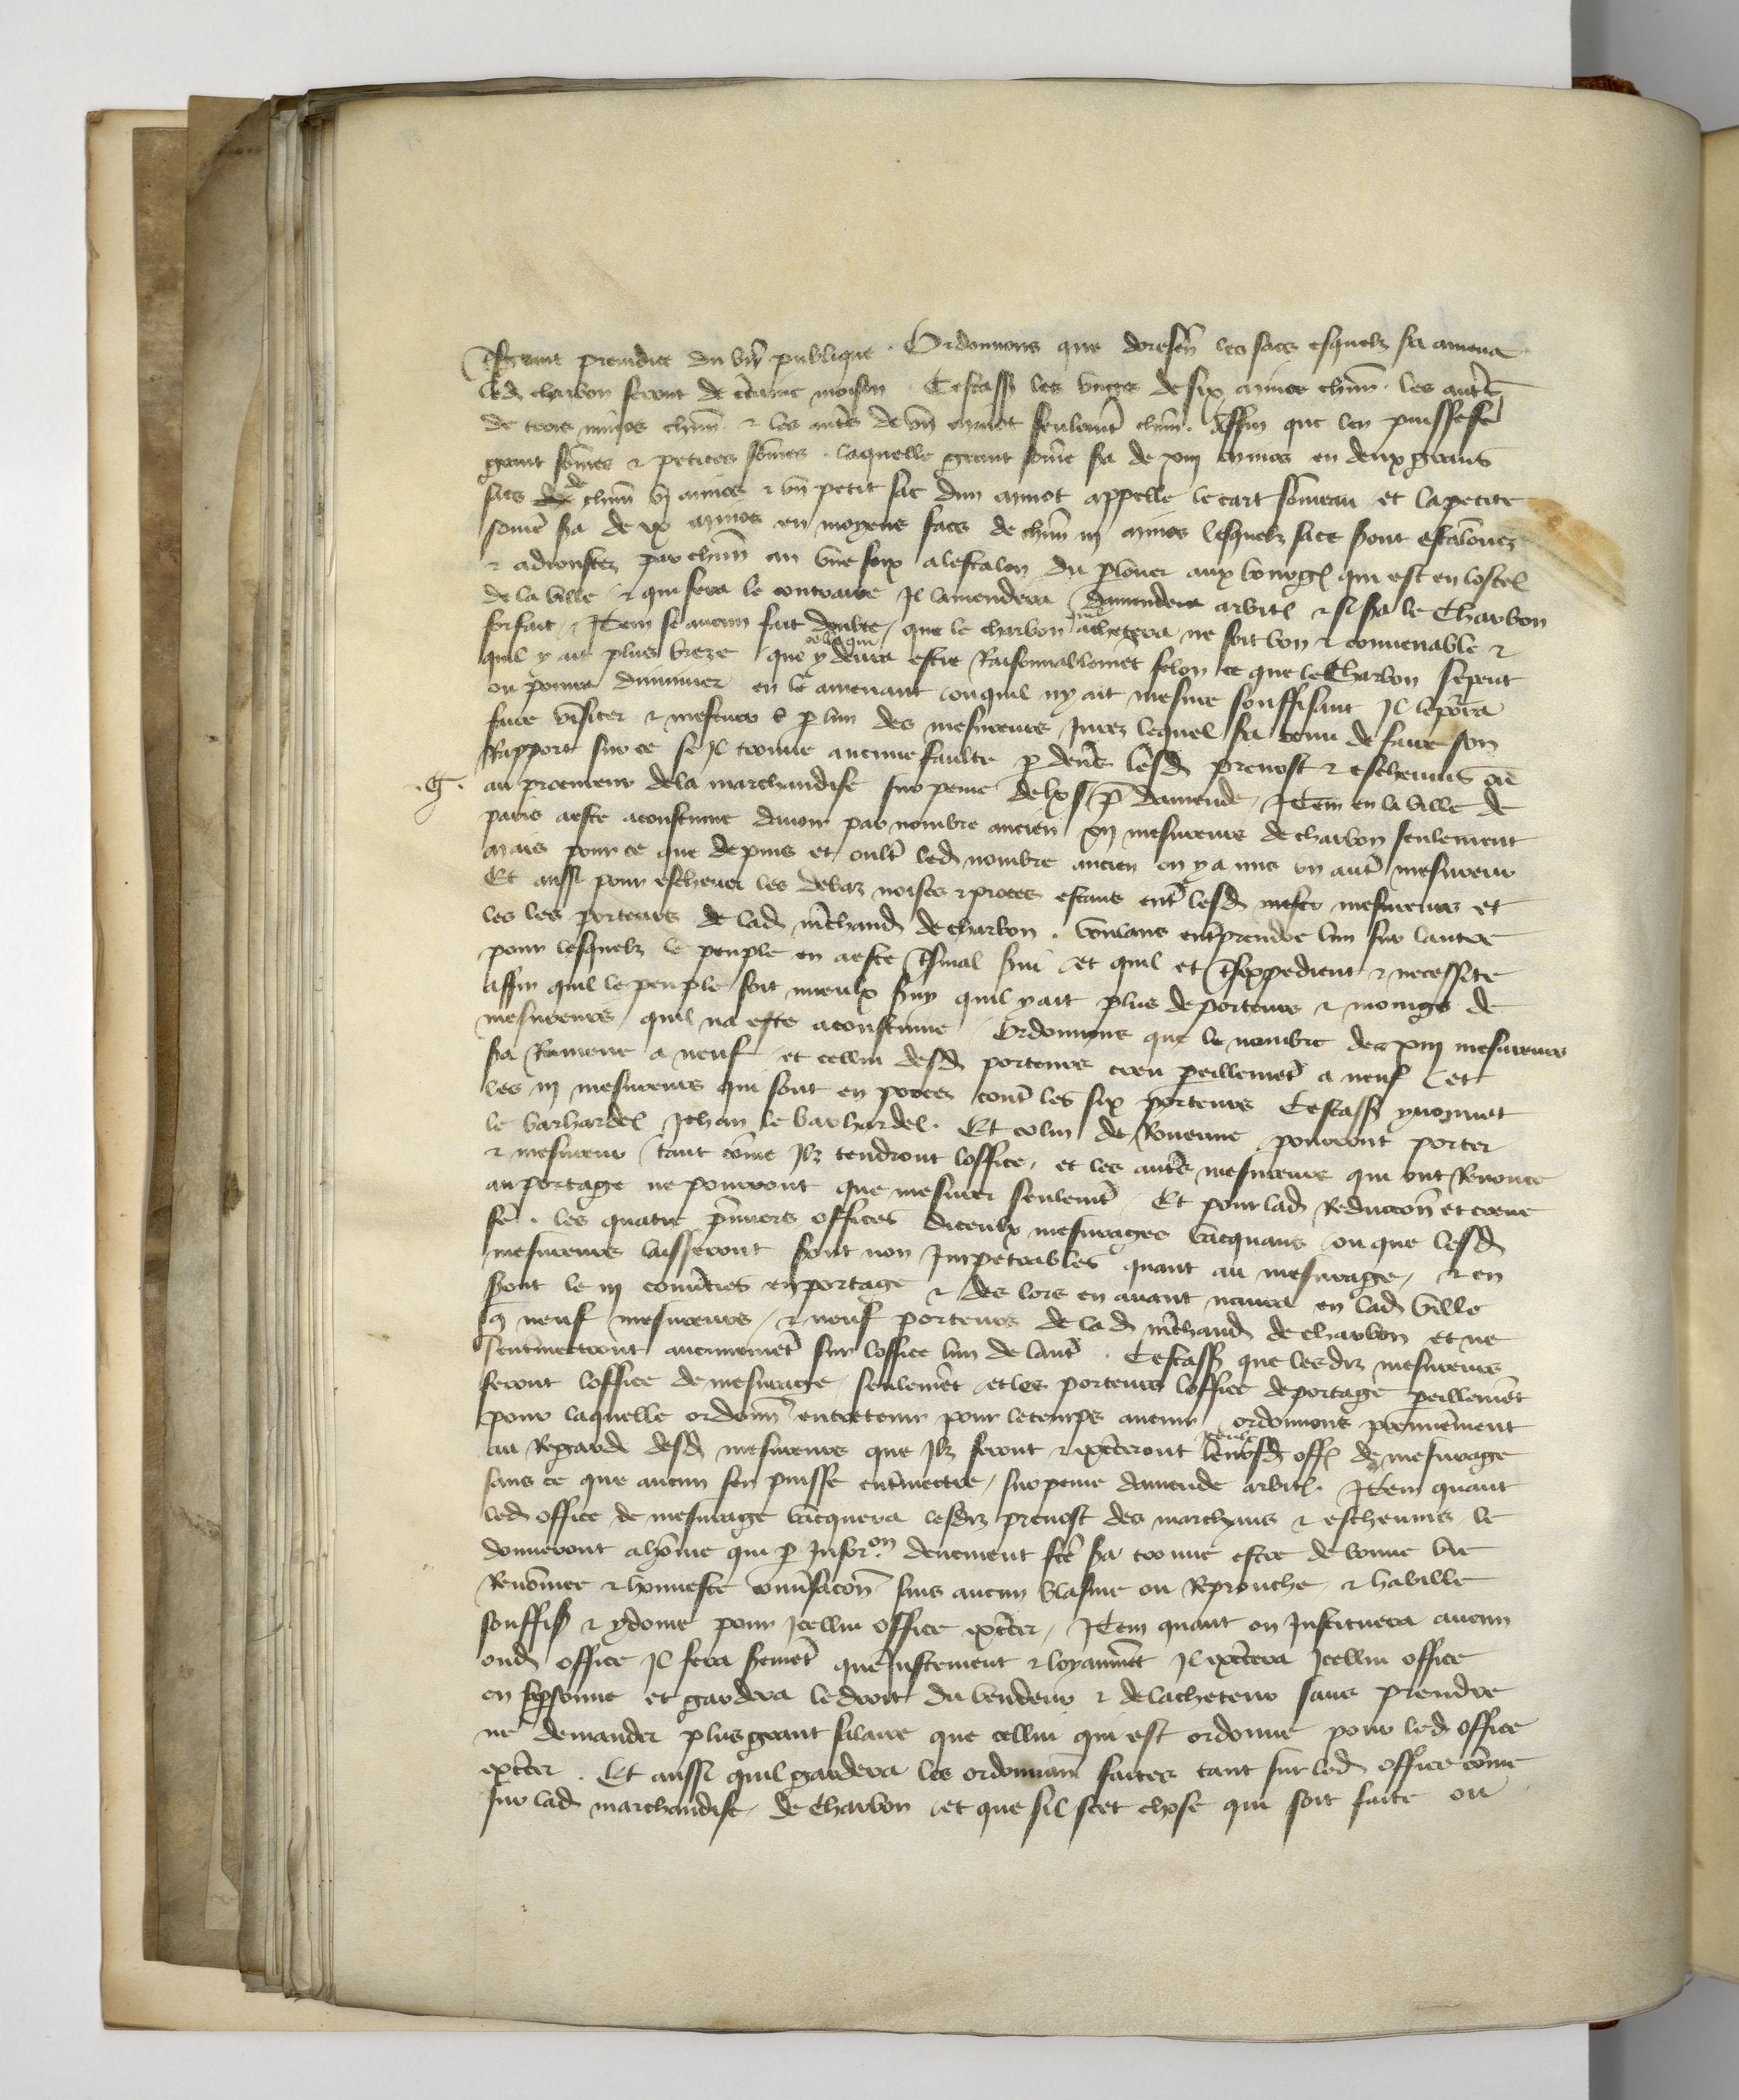 tresgrant preiudice du bien publique . Ordonnons que doresen les sacs esquelz sera amene
led charbon seront de certaine moison . Cestass les ungs de six mines chun . les autres
de trois mines chun . & les autres de un minot seulemt chun . Affin que len puisse fe
grant somes & petites somes . laquelle grant some sera de xiij mines en deux grans
sacs de chun vj mines & un petit sac dun minot appelle le cart someau et la petite
some sera de ix mines en moyens sacs de chun iij mines lesquelz sacs seront estalonnez
& adioustez par chun an une foix a lestalon du ploer aux bourgs qui est en lostel
de la ville & qui fera le contraire Il lamendera damende arbitl & si sera le Charbon
forfait . Item se aucun fait doubte / que le charbon quil achetera ne soit bon & convenable &
quil y ait plus breze que y devra estre Raisonnablemet selon ce que le Charbon se peut
ou pourra diminuer en le amenant ou quil ny ait mesure souffisant Il le porra
faire visiter & mesurer p lun des mesureurs Jurez lequel sera tenu de faire son
Rapport sur ce se Il treuve aucune faulte p devers lesd prevost & eschevins ou
.G. au procureur de la marchandise sur peine de lx s p damende / Item en la ville de
paris a este acoustume davoir par nombre ancien xij mesureurs de charbon seulement
mais pour ce que depuis et oult led nombre ancien on y a mis un aut mesureur
Et aussi pour eschever les debaz noises & proces estans ent lesd mesureurs et
les les porteurs de lad mchand de charbon . voulans entprendre lun sur lautre
pour lesquelz le peuple en a este tresmal servi et quil est tresexpedient & necessite
affin quil le peuple soit mieulx servy quil y ait plus de porteurs & moings de
mesureurs quil na este acoustume Ordonnons que le nombre des xiij mesureurs
sera Ramene a neuf et cellui desd porteurs creu peillemet a neuf et
les iij mesureurs qui sont en proces cont les six porteurs Cestass ynonnet
le barhardel Jehan le barhardel . Et colin de Rouenne pourront porter
& mesureur tant come Ilz tendront loffice , et les autres mesureurs qui ont Renonce
au portage ne pourront que mesurer seulemt Et pour lad Reducon et creue
fe . les quatre pmiers offices diceulx mesurages vacquans ou que lesd
mesureurs laisseront sont non Impetrables quant au mesurage , & en
seront le iij comuers en portage & des lors en avant naura en lad ville
q neuf mesureurs / & neuf porteurs de la d mchand de charbon et ne
sentmectront aucunemet sur loffice lun de laut . Cestass que lesdiz mesureurs
feront loffice de mesurage seulemet et les porteurs loffice de portage peillemet
pour laquelle ordonn entretenir pour le temps avenir ordonnons premierement
au Regard desd mesureurs que Ilz feront & exceront leursd off de mesurage
sans ce que aucun sen puisse entmectre / sur peine damende arbitl . Item quant
led office de mesurage vacquera lesdiz prevost des marchans & eschevins le
donneront a home qui p Inforon deuement fce sera trouve estre de bonne vie
Renomee & honneste conversacon sans aucun blasme ou Reprouche & habille
souffiss & ydoine pour Icellui office excer , Item quant on Instituera aucun
oud office Il fera sermet que Justement & loyaumet Il excera Icellui office
en sa psonne et gardera le droit du vendeur & de lacheteur sans prendre
ne demander plus grant salaire que cellui qui est ordonne pour led office
excer . Et aussi quil gardera les ordonnan faictes tant sur led office come
sur lad marchandise de charbon et que sil scet chose qui soit faicte ou